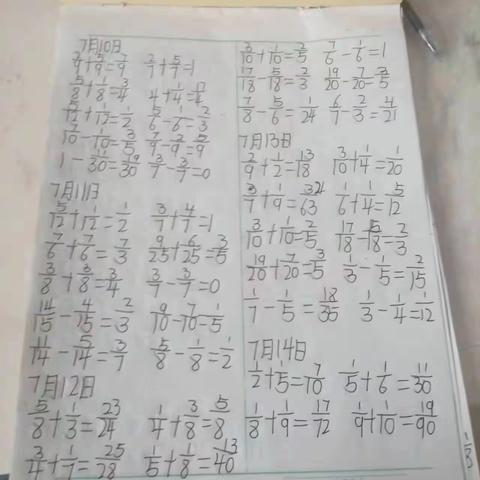 7月10日
2/9+5/9=7/9 2/7+5/7=1
5/8+1/8=3/4 4+1/4=17/4
5/12+1/12=1/2 5/6-1/6=2/3
7/10-1/10=3/5 7/9-2/9=5/9
1-11/30=19/30 3/7-3/7=0
7月11日
5/12+1/12=1/2 3/7+4/7=1
7/6+7/6=7/3 9/25+6/25=3/5
3/8+3/8=3/4 3/7-3/7=0
14/15-4/15=2/3 9/10-7/10=1/5
11/14-5/14=3/7 5/8-1/8=1/2
7月12日
5/8+1/3=23/24 1/4+3/8=5/8
3/4+1/7=25/28 1/5+1/8=13/40
3/10+1/10=2/5 7/6-1/6=1
17/18-5/18=2/3 19/20-7/20=3/5
7/8-5/6=1/24 6/7-2/3=4/21
7月13日
2/9+1/2=13/18 3/10+1/4=1/20
3/7+1/9=34/63 1/6+1/4=5/12
3/10+1/10=2/5 17/18-5/18=2/3
19/20+7/20=3/5 1/3-1/5=2/15
1/7-1/5=18/35 1/3-1/4=1/12
7月14日
1/2+1/5=7/10 1/5+1/6=11/30
1/8+1/9=17/72 1/9+1/10=19/90